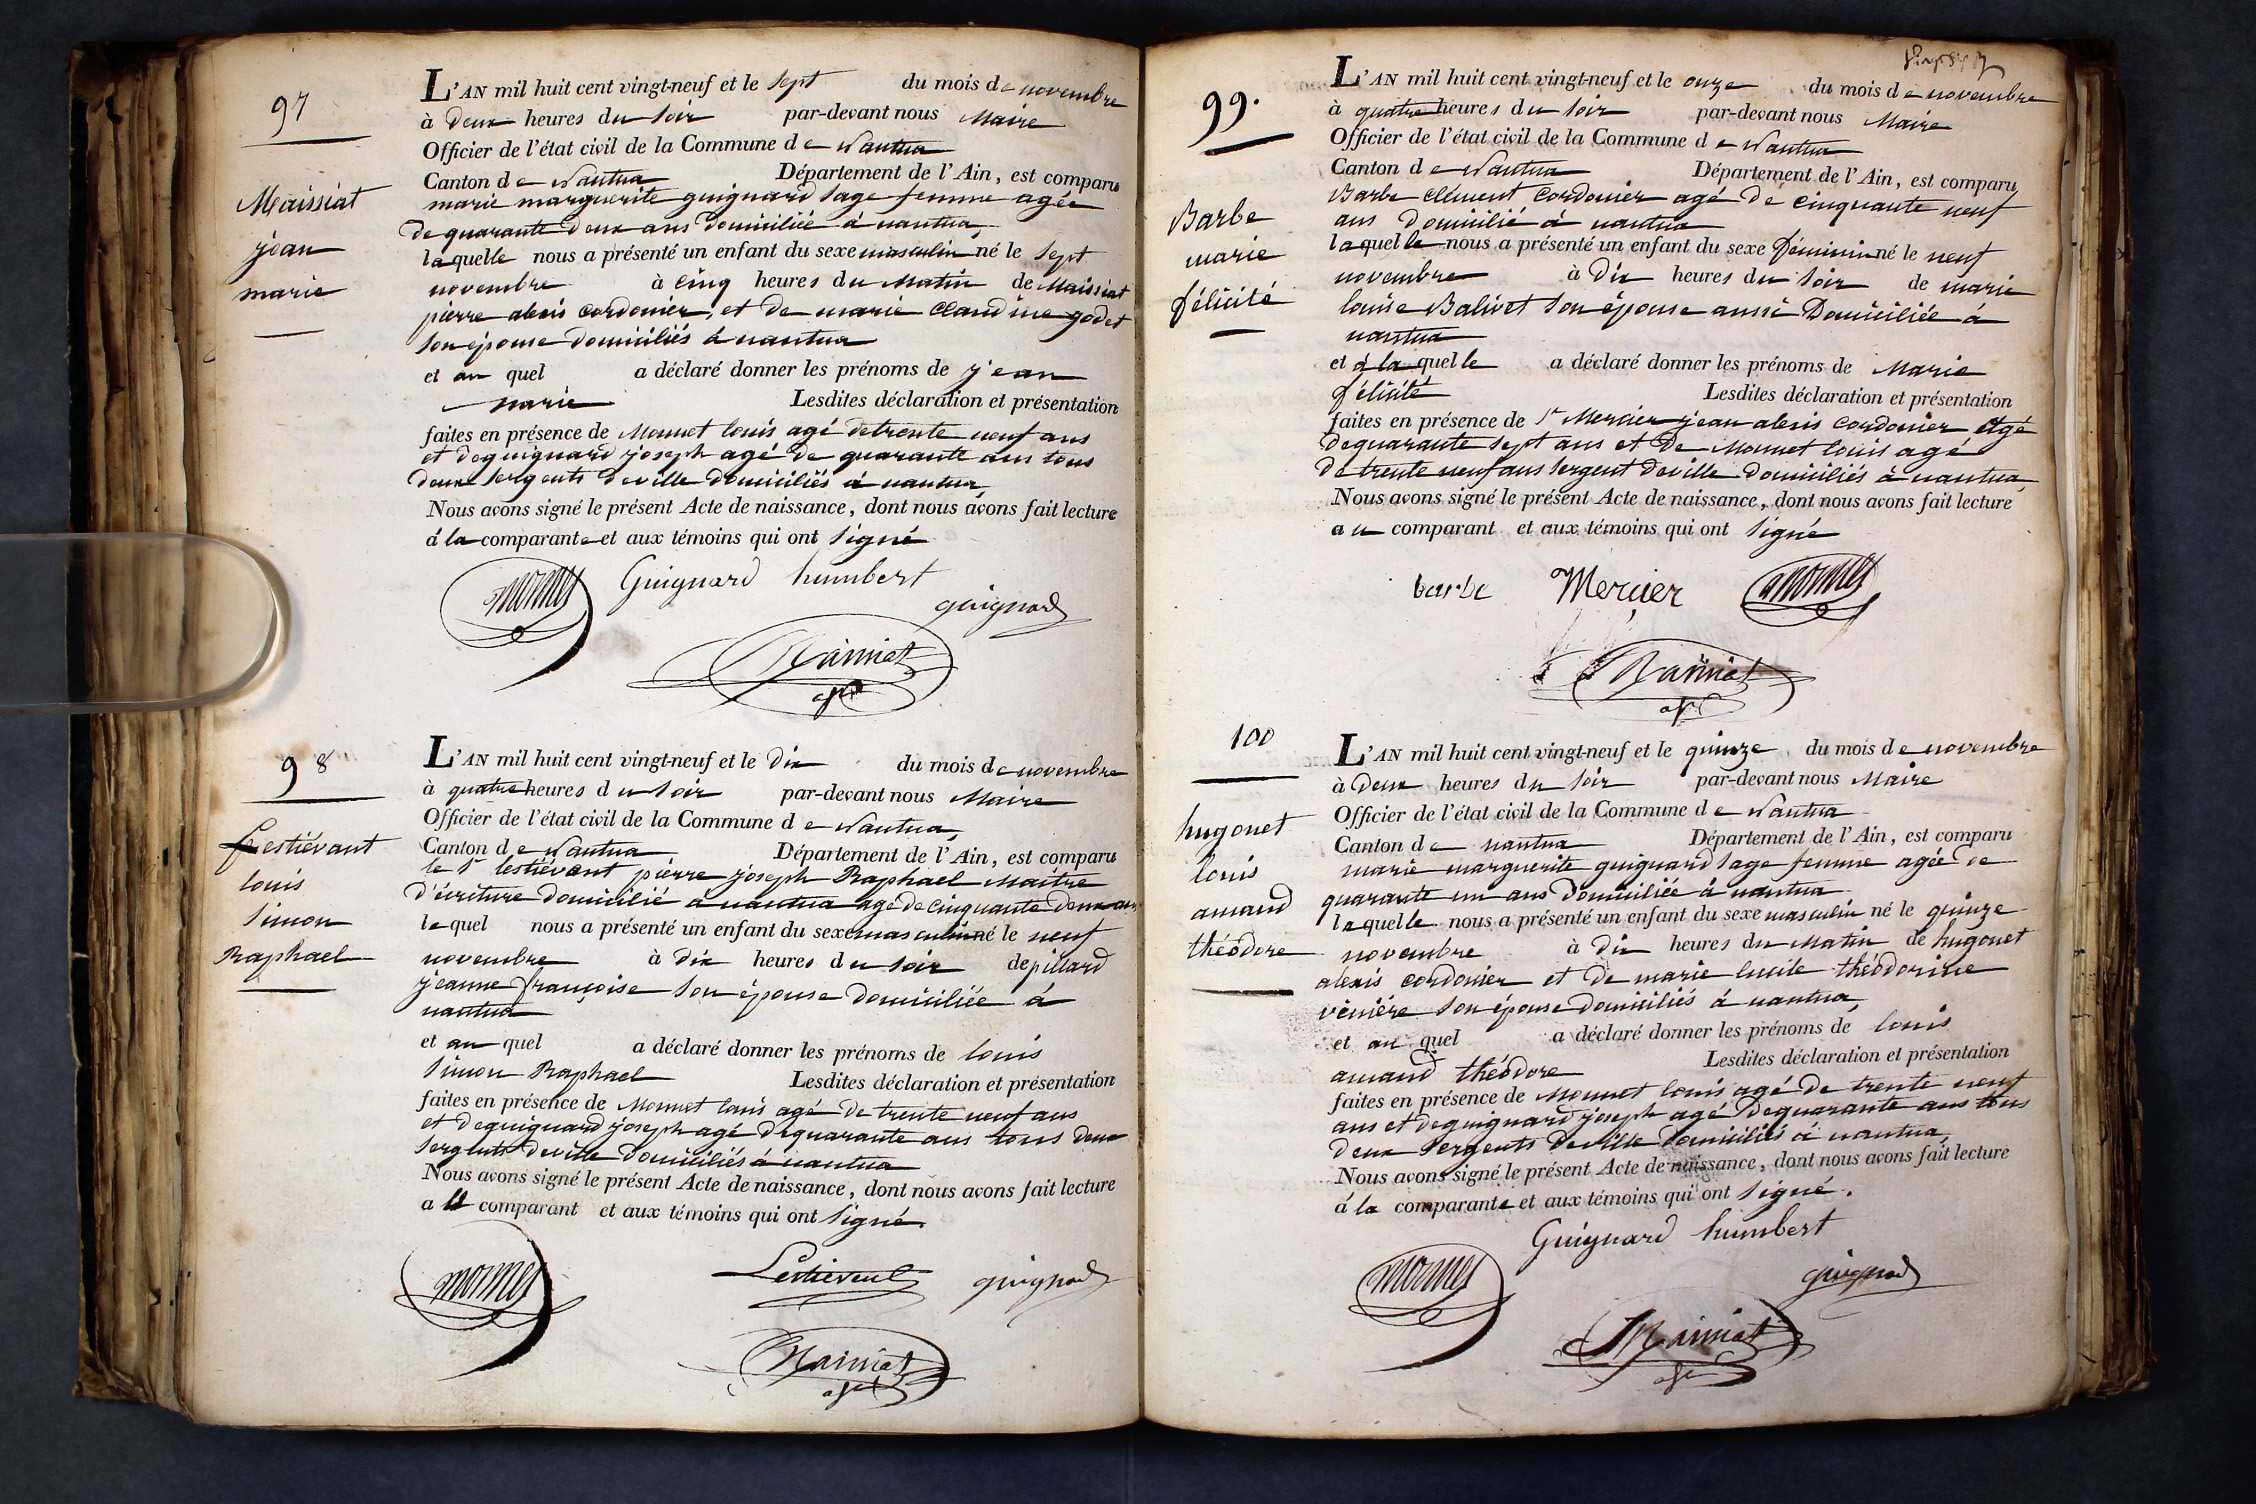 97
Maissiat
jean
marie
L'AN mil huit cent vingt-neuf et le sept du mois de novembre
à Deux heures du soir par-devant nous Maire
Officier de l'état civil de la Commune de Nantua
Canton de Nantua Département de l'Ain, est comparu
marie marguerite guignard sage femme agée
de quarante deux ans domiciliée à nantua,
laquelle nous a présenté un enfant du sexe masculin né le sept
novembre à cinq heures du matin de Maissiat
pierre alexis cordonier, et de marie claudine godet
son épouse domiciliés à nantua
et au quel a déclaré donner les prénoms de jean
marie Lesdites déclaration et présentation
faites en présence de Monnet louis agé de trente neuf ans
et de guignard joseph agé de quarante ans tous
deux sergents de ville domiciliés à nantua,
Nous avons signé le présent Acte de naissance, dont nous avons fait lecture
à la comparante et aux témoins qui ont signé
monnet Guignard humbert
guignard
98
Lestiévant
louis
simon
Raphael
L'AN mil huit cent vingt-neuf et le dix du mois de novembre
à quatre heures du soir par-devant nous Maire
Officier de l'état civil de la Commune de Nantua,
Canton de Nantua Département de l'Ain, est comparu
le Sr lestiévant pierre joseph Raphael Maitre
d'écriture domicilié à nantua agé de cinquante deux ans
lequel nous a présenté un enfant du sexe masculin né le neuf
novembre à dix heures du soir de pillard
jeanne françoise son épouse domiciliée à
nantua
et au quel a déclaré donner les prénoms de louis
simon Raphael Lesdites déclaration et présentation
faites en présence de Monnet louis agé de trente neuf ans
et de guignard joseph agé de quarante ans tous deux
sergents de ville domiciliés à nantua
Nous avons signé le présent Acte de naissance, dont nous avons fait lecture
au comparant et aux témoins qui ont signé.
monnet Lestievent guignard
99.
Barbe
marie
félicité
L'AN mil huit cent vingt-neuf et le onze du mois de novembre
à quatre heures du soir par-devant nous Maire
Officier de l'état civil de la Commune de Nantua
Canton de Nantua Département de l'Ain, est comparu
Barbe clément, cordonier agé de cinquante neuf
ans domicilié à nantua
laquelle nous a présenté un enfant du sexe féminin né le neuf
novembre à dix heures du soir de marie
louise Balivet son épouse aussi Domiciliée à
nantua
et à la quelle a déclaré donner les prénoms de Marie
félicité Lesdites déclaration et présentation
faites en présence de Sr Mercier jean alexis cordonier agé
de quarante sept ans et de Monnet louis agé
de trente neuf ans sergent de ville domiciliés à nantua,
Nous avons signé le présent Acte de naissance, dont nous avons fait lecture
au comparant et aux témoins qui ont signé
barbe Mercier monnet
100
hugonet
louis
amand
théodore
L'AN mil huit cent vingt-neuf et le quinze du mois de novembre
à Deux heures du soir par-devant nous Maire
Officier de l'état civil de la Commune de Nantua
Canton de nantua Département de l'Ain, est comparu
marie marguerite guignard sage femme agée de
quarante un ans domiciliée à nantua
laquelle nous a présenté un enfant du sexe masculin né le quinze
novembre à dix heures du matin de hugonet
alexis cordonier et de marie lucile théodorine
son épouse domiciliés à nantua,
et au quel a déclaré donner les prénoms de louis
amand théodore Lesdites déclaration et présentation
faites en présence de Monnet louis agé de trente neuf
ans et de guignard joseph agé de quarante ans tous
deux sergents de ville domiciliés à nantua,
Nous avons signé le présent Acte de naissance, dont nous avons fait lecture
à la comparante et aux témoins qui ont signé.
Guignard humbert
monnet guignard